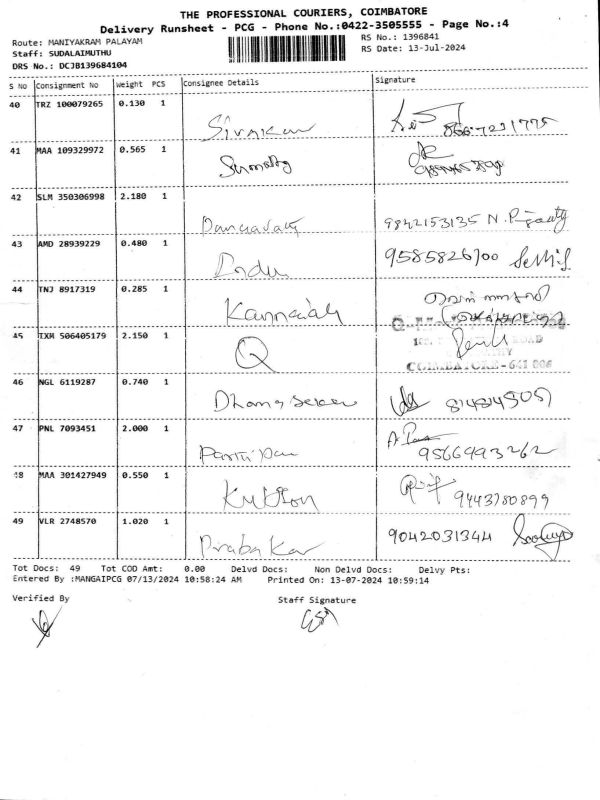 THE PROFESSIONAL COURIERS, COIMBATORE
Delivery Runsheet - PCG - Phone No.:0422-3505555 - Page No.:4
Route: MANIYAKRAM PALAYAM
Staff: SUDALAIMUTHU
DRS No.: DCJB139684104
RS No.: 1396841
RS Date: 13-Jul-2024
S No Consignment No Weight PCS Consignee Details Signature
40 TRZ 100079265 0.130 1 Sivakumar
41 MAA 109329972 0.565 1
42 SLM 350306998 2.180 1 9842153135 N.
43 AMD 28939229 0.480 1 Indu 9585826700
44 TNJ 8917319 0.285 1
45 TXM 506405179 2.150 1 Q
ROAD
COIMBATORE - 641 006
46 NGL 6119287 0.740 1 Dhanasekar
47 PNL 7093451 2.000 1 Parthipan 9566993262
48 MAA 301427949 0.550 1 9443780899
49 VLR 2748570 1.020 1 Prabakar 9042031344
Tot Docs: 49 Tot COD Amt: 0.00 Delvd Docs: Non Delvd Docs: Delvy Pts:
Entered By :MANGAIPCG 07/13/2024 10:58:24 AM Printed On: 13-07-2024 10:59:14
Verified By Staff Signature